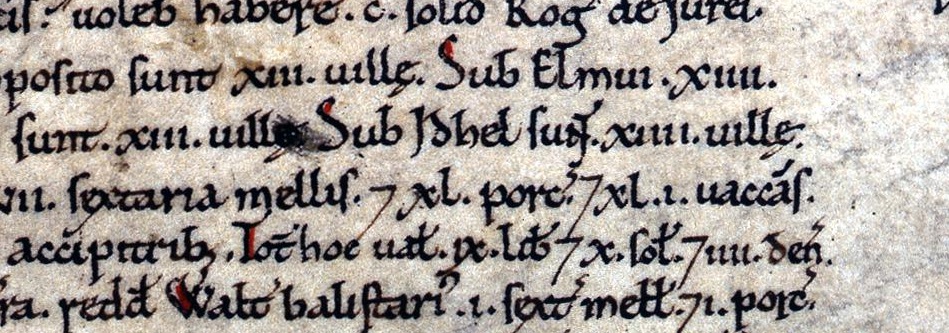 uoleb habere. c. solid Rog de Iurei.
posito sunt xiii. uille. Sub Elmui. xiiii.
sunt. xiii. uille Sub Idhel sunt. xiiii. uille.
vii. sextaria mellis. ⁊ xl. porc' ⁊ xl. i. uaccas.
accipitrib; . Tot hoc ual. ix. lib ⁊ x. sol. ⁊ iiii. den.
ra. redd Walt balistari'. i. sext mell. ⁊ i. porc'.